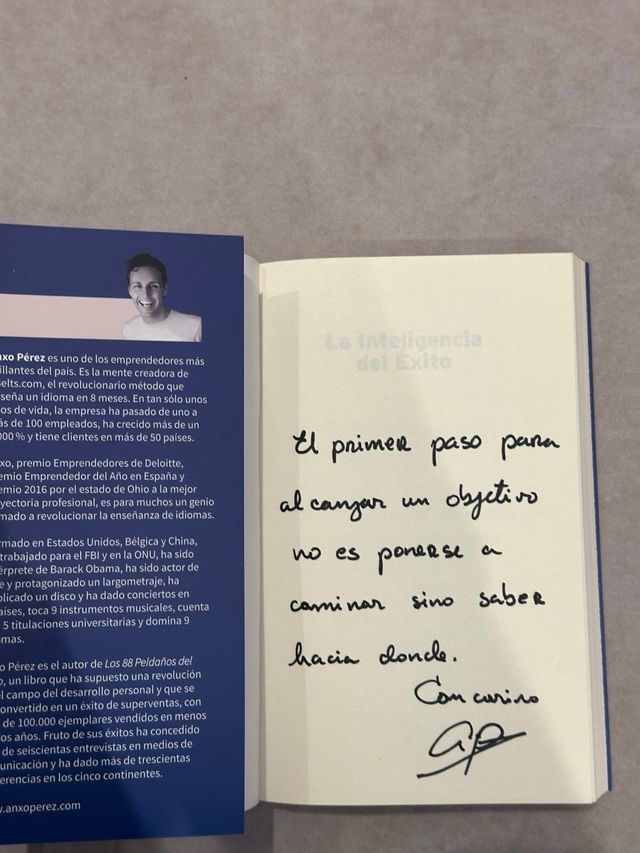 nxo Pérez es uno de los emprendedores más
illantes del país. Es la mente creadora de
selts.com, el revolucionario método que
seña un idioma en 8 meses. En tan sólo unos
os de vida, la empresa ha pasado de uno a
ás de 100 empleados, ha crecido más de un
000 % y tiene clientes en más de 50 países.
xo, premio Emprendedores de Deloitte,
emio Emprendedor del Año en España y
emio 2016 por el estado de Ohio a la mejor
yectoria profesional, es para muchos un genio
mado a revolucionar la enseñanza de idiomas.
rmado en Estados Unidos, Bélgica y China,
trabajado para el FBI y en la ONU, ha sido
érprete de Barack Obama, ha sido actor de
e y protagonizado un largometraje, ha
blicado un disco y ha dado conciertos en
aíses, toca 9 instrumentos musicales, cuenta
5 titulaciones universitarias y domina 9
omas.
o Pérez es el autor de Los 88 Peldaños del
o, un libro que ha supuesto una revolución
el campo del desarrollo personal y que se
convertido en un éxito de superventas, con
de 100.000 ejemplares vendidos en menos
os años. Fruto de sus éxitos ha concedido
de seiscientas entrevistas en medios de
unicación y ha dado más de trescientas
erencias en los cinco continentes.
w.anxoperez.com
La Inteligencia
del Éxito
El primer paso para
alcanzar un objetivo
no es ponerse a
caminar sino saber
hacia donde.
Con cariño
AP